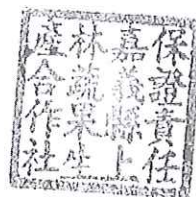 保證責任
嘉義縣上
林蔬果生
產合作社